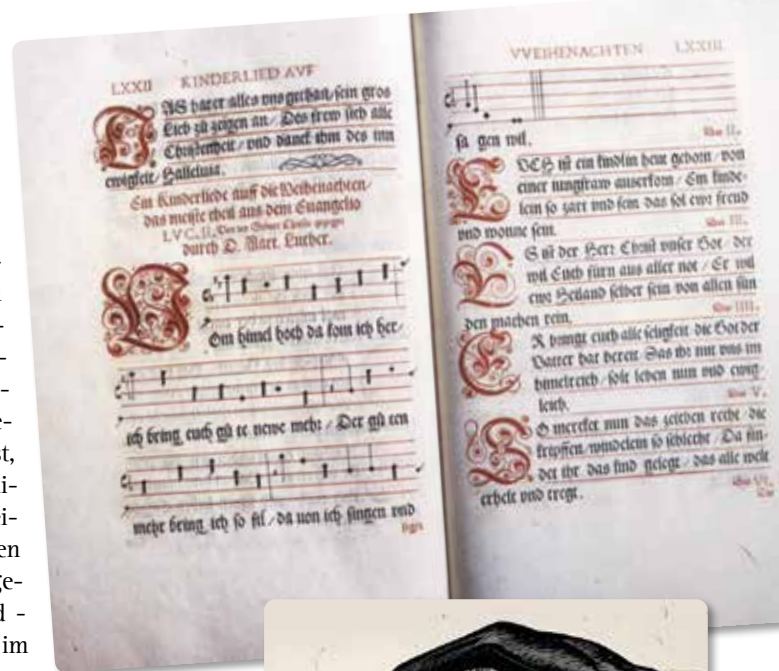 LXXII KINDERLIED AVF
AS hat er alles vns gethan / sein gros
Lieb zů zeigen an / Des frew sich alle
Christenheit / vnd danck ihm des inn
ewigkeit / Halleluia.
Ein Kinderliede auff die Weihenachten /
das meiste theil aus dem Euangelio
LVC. II.
durch D. Mart. Luther.
Vom himel hoch da kom ich her /
ich bring euch gů te newe mehr / Der gů ten
mehr bring ich so fil / da uon ich singen vnd
VVEIHENACHTEN LXXIII
sa gen wil.
II.
VCH ist ein kindlin heut geborn / von
einer iungfraw auserkorn / Ein kinde-
lein so zart vnd fein das sol ewr freud
vnd wonne sein.
III.
S ist der Herr Christ vnser Got / der
wil Euch fürn aus aller not / Er wil
ewr Heiland selber sein von allen sün
den machen rein.
IIII.
R bringt euch alle seligkeit die Got der
Vatter hat bereit Das ihr mit vns im
himelreich / solt leben nun vnd ewig-
leich.
V.
O mercket nun das zeichen recht / die
krippen / windelein so schlecht / Da fin-
det ihr das kind gelegt / das alle welt
erhelt vnd tregt.
st,
en
ge-
d -
im